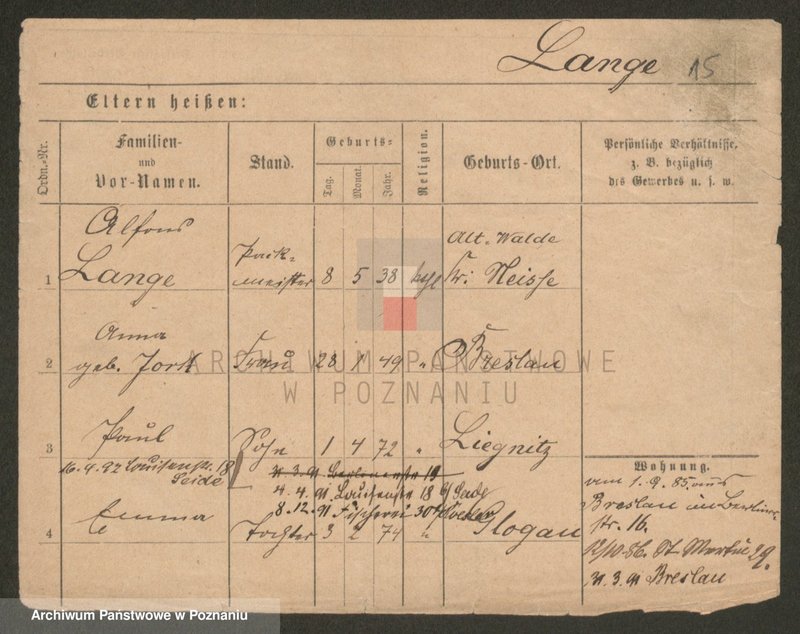 Lange 15
Eltern heißen:
Ordn.-Nr.
Familien-
und
Vor-Namen.
Stand.
Geburts-
Tag.
Monat.
Jahr.
Religion.
Geburts-Ort.
Persönliche Verhältnisse,
z. B. bezüglich
des Gewerbes u. s. w.
Alfons
1 Lange Pack-
meister 8 5 38 kath Alt-Walde
Kr. Neisse
Anna
2 geb. Frau 28 1 49 " Breslau
ARCHIWUM PAŃSTWOWE
W POZNANIU
3 Paul Sohn 1 4 72 " Liegnitz
16.4.92 Louisenstr. 18
Seide
21.3.91 Berlinerstr 19
4.4.91. Louisenstr 18 b/
8.12.91 Fischerei 30
4 Emma Tochter 3 2 74 " Glogau
Wohnung.
vom 1.9.85. aus
Breslau in Berliner-
str. 16.
St. Martin 29.
21.3.91 Breslau
Archiwum Państwowe w Poznaniu